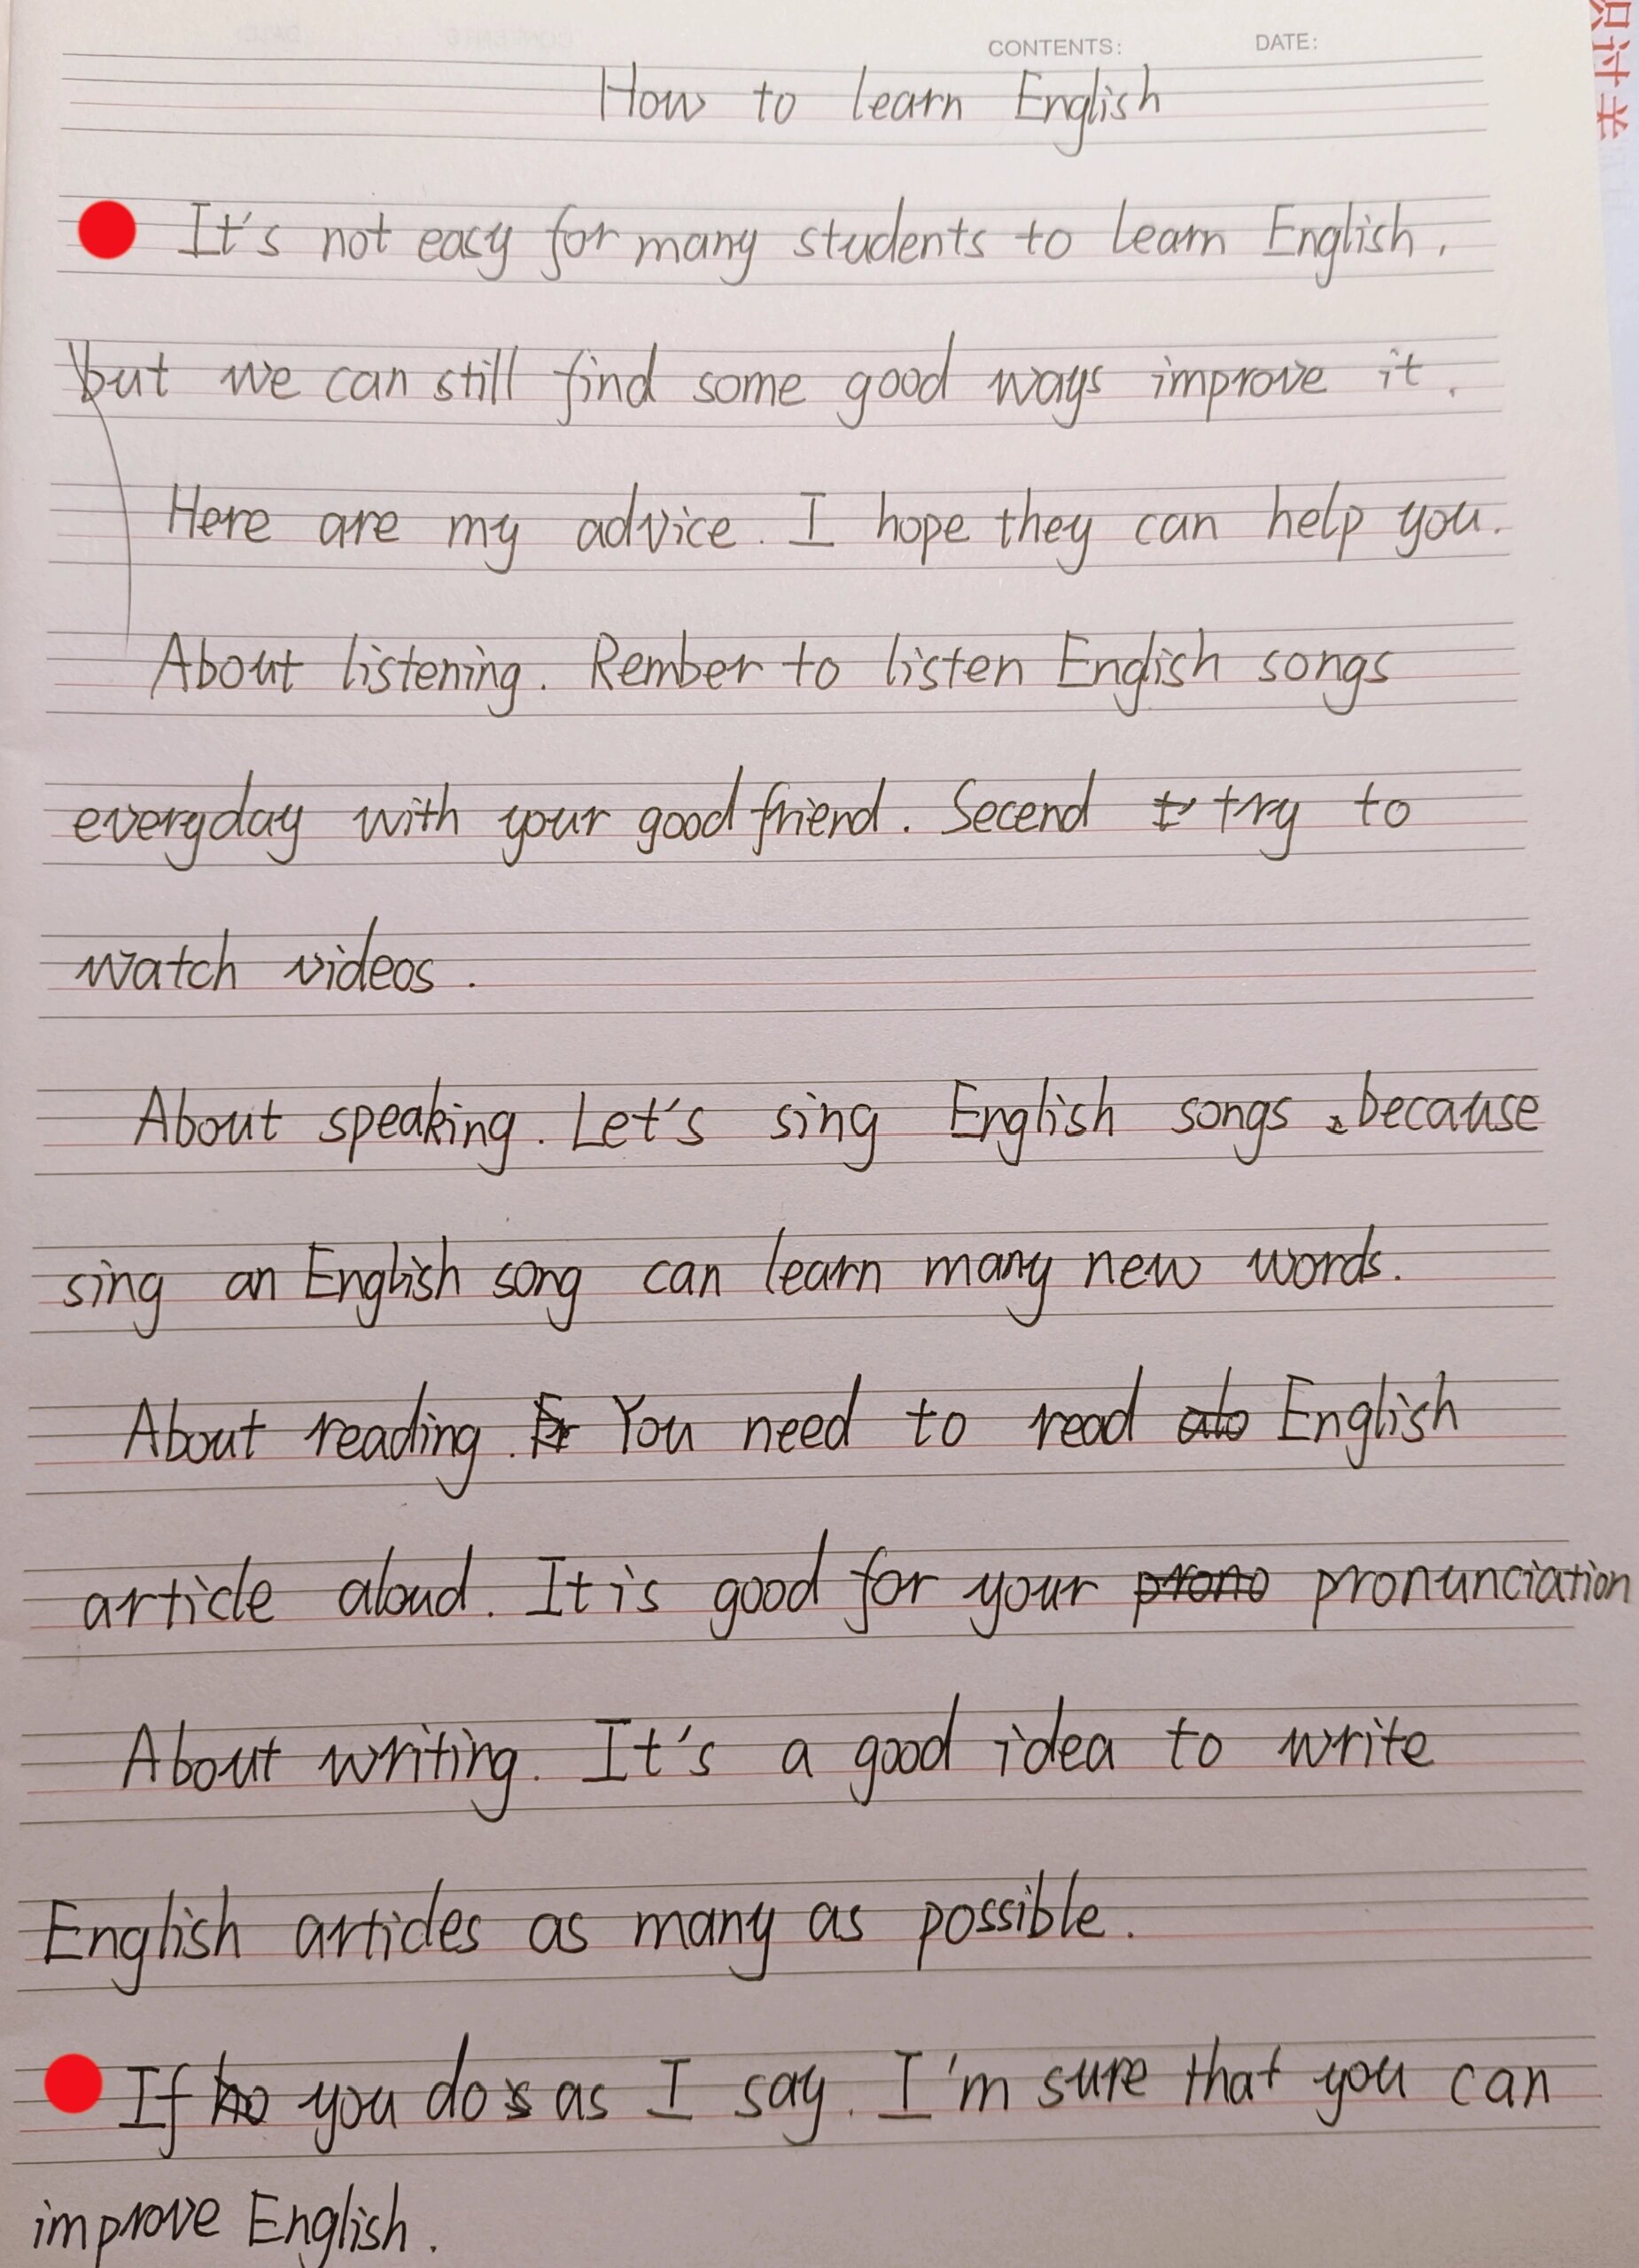 CONTENTS: DATE:
How to learn English
It's not easy for many students to learn English.
but we can still find some good ways improve it.
Here are my advice. I hope they can help you.
About listening. Rember to listen English songs
everyday with your good friend. Secend try to
watch videos.
About speaking. Let's sing English songs, because
sing an English song can learn many new words.
About reading. You need to read English
article aloud. It is good for your prono pronunciation
About writing. It's a good idea to write
English articles as many as possible.
If you do as I say. I'm sure that you can
improve English.